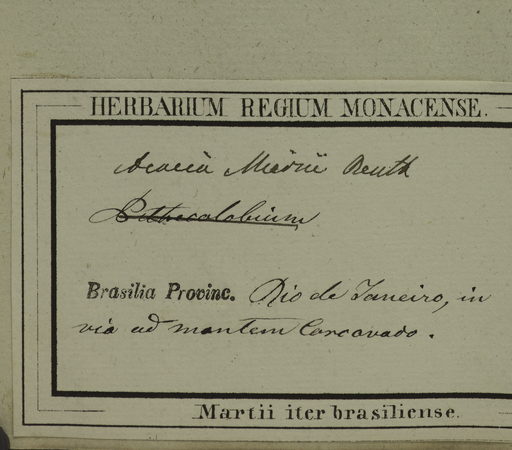 HERBARIUM REGIUM MONACENSE.
Acacia Miersii Benth
Pithecolobium
Brasilia Provinc. Rio de Janeiro, in
via ad montem Corcovado.
Martii iter brasiliense.